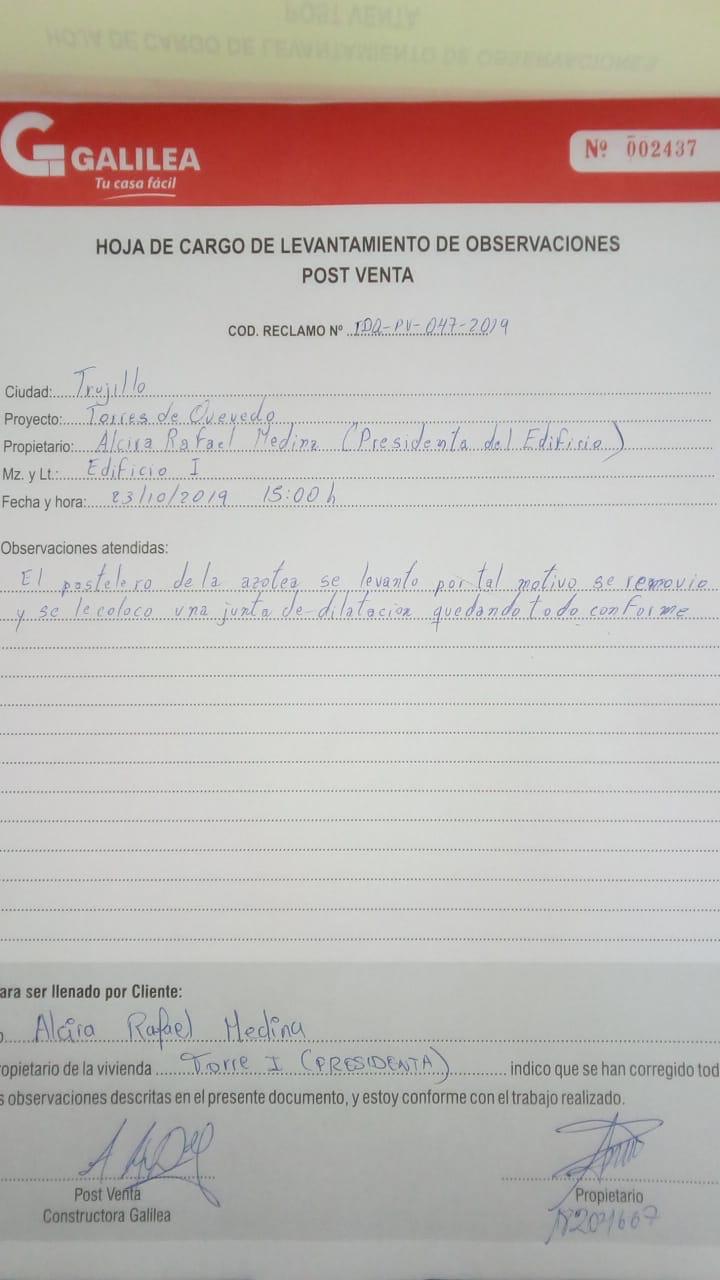 POST VENTA
HOJA DE CARGO DE LEVANTAMIENTO DE OBSERVACIONES
GALILEA
Tu casa fácil
Nº 002437
HOJA DE CARGO DE LEVANTAMIENTO DE OBSERVACIONES
POST VENTA
COD. RECLAMO Nº TDQ-PV-047-2019
Ciudad: Trujillo
Proyecto: Torres de Quevedo
Propietario: Alcira Rafael Medina (Presidenta del Edificio)
Mz. y Lt.: Edificio I
Fecha y hora: 23/10/2019 15:00 h
Observaciones atendidas:
El pastelero de la azotea se levanto por tal motivo se removio
y se le coloco una junta de dilatacion quedando todo conforme
ara ser llenado por Cliente:
o Alcira Rafael Medina
ropietario de la vivienda Torre I (PRESIDENTA) indico que se han corregido tod
s observaciones descritas en el presente documento, y estoy conforme con el trabajo realizado.
Post Venta
Constructora Galilea
Propietario